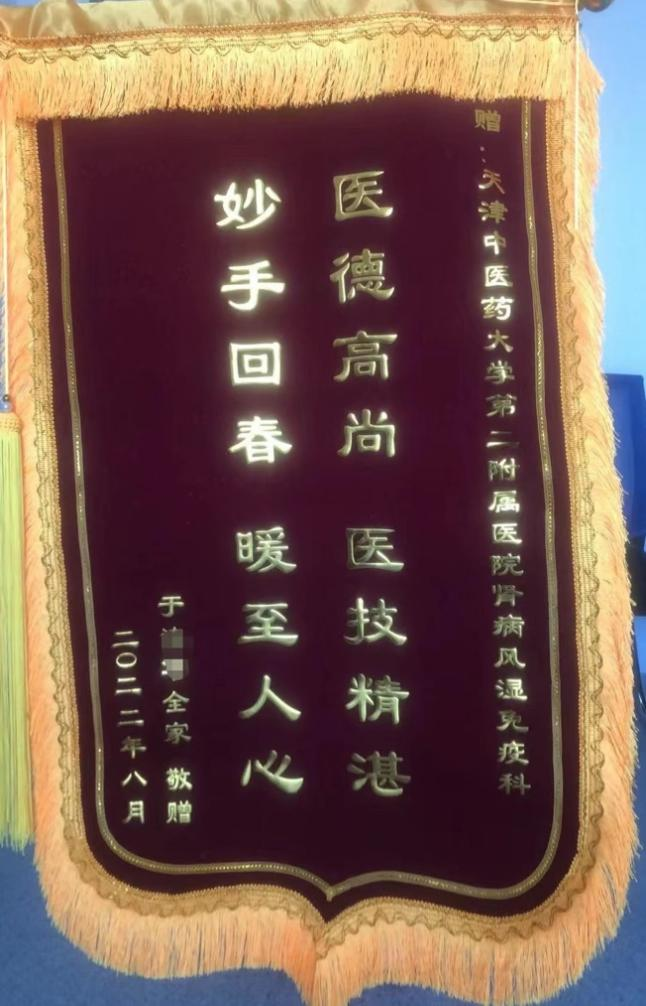 赠：天津中医药大学第二附属医院肾病风湿免疫科
医德高尚 医技精湛
妙手回春 暖至人心
于 全家 敬赠
二〇二二年八月